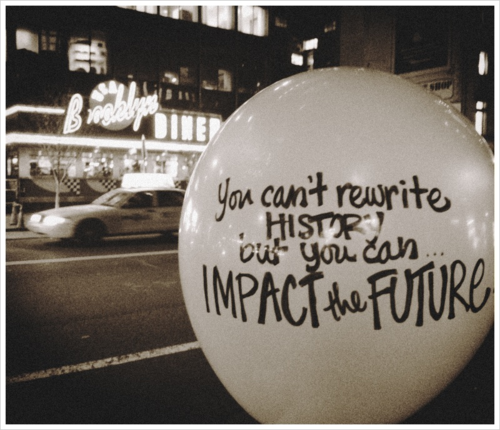 Brooklyn
DINER
SHOP
you can't rewrite
HISTORY
but you can...
IMPACT the FUTURE